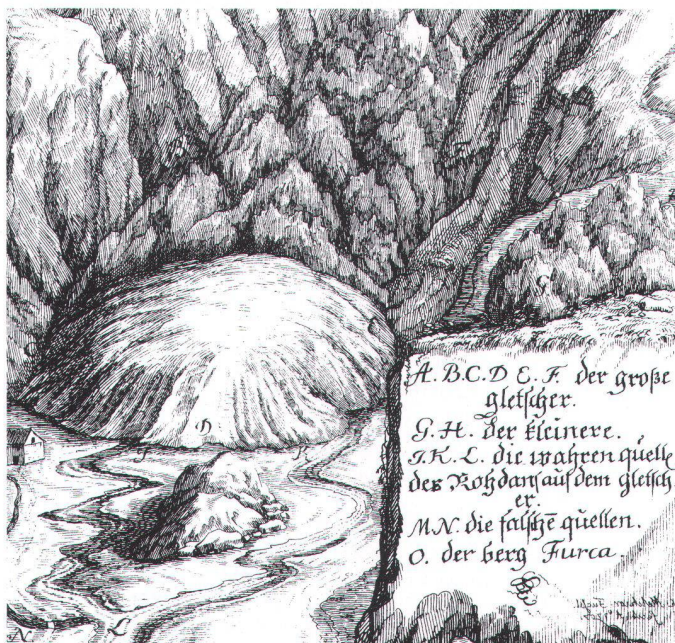 C
C
G
D
J
K
L
N
A. B. C. D E. F. der große
gletscher.
G. H. der kleinere.
J. K. L. die wahren quelle
des Rohdans auf dem gletsch
er
M N. die falschē quellen.
O. der berg Furca.